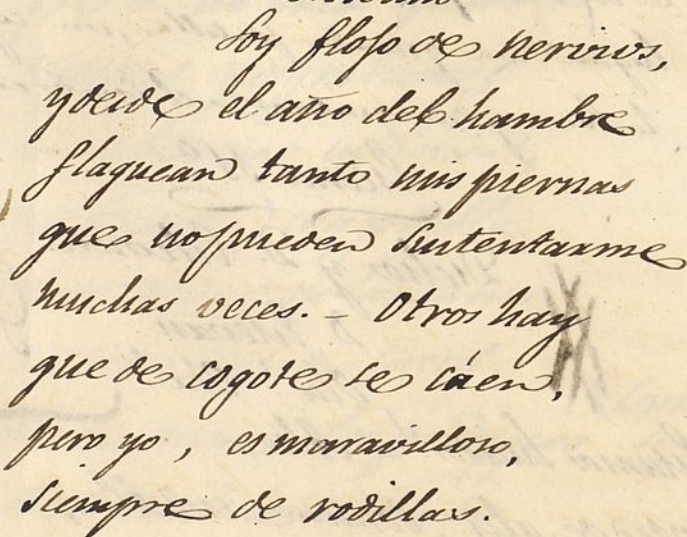 Soy flojo de nervios,
y desde el año del hambre
flaquean tanto mis piernas
que no pueden sustentarme
muchas veces. - Otros hay
que de cogote se cáen,
pero yo, es maravilloso,
siempre de rodillas.